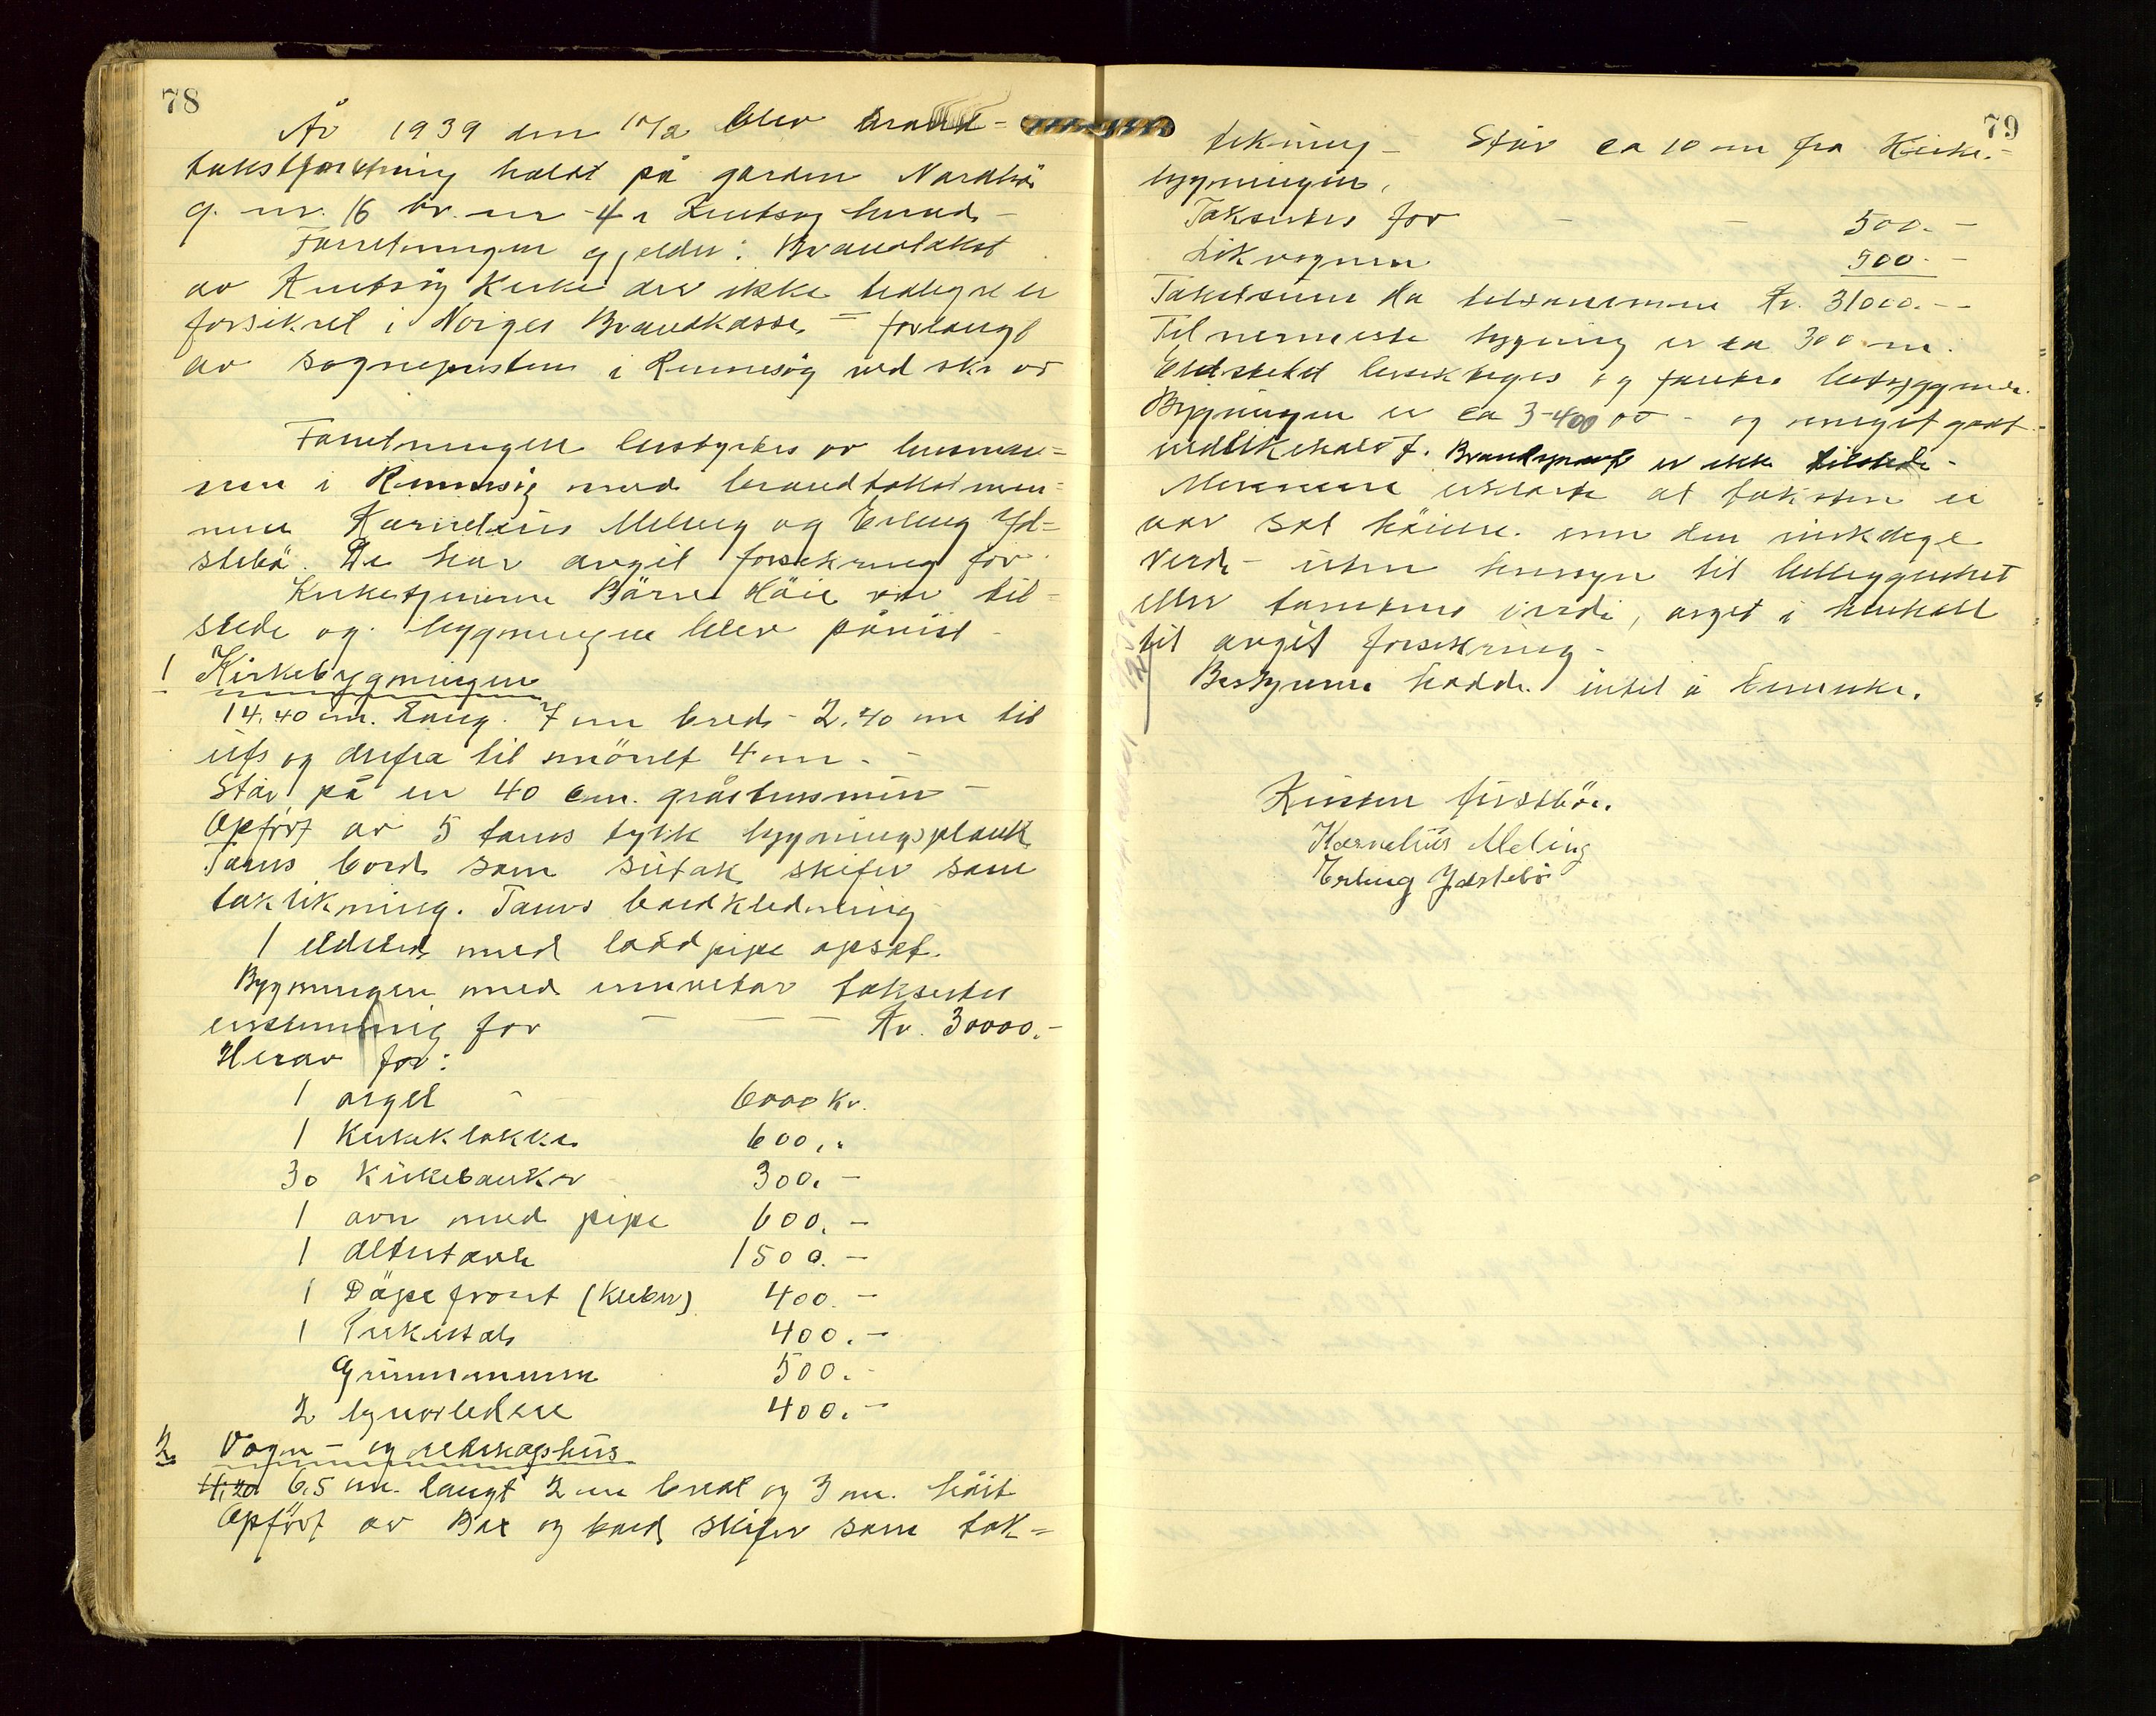 78
År 1939 den 10/2 blev brand=
takstforretning holdt på garden Nordbö
g. nr. 16 br. nr 4 i
Forretningen gjelder: Brandtakst
av Kirke der ikke tidligere er
forsikret i Norges Brandkasse = forlangt
av sognepresten i Rennesöy ved skr av
Forretningen bestyrtes av lensman=
nen i Rennesöy med brandtakstmen=
nene Kornelius Meling og Erling Yd=
stebö. De har avgit forsikring för.
Kirketjenerne Höie var til=
stede og bygningen blev påvist -
1 Kirkebygningen
14,40 m. lang. 7 m bred - 2,40 m til
ufs og derfra til mönet 4 m. -
Står på en 40 cm. gråstensmur -
Opfört av 5 toms tykk bygningsplank
Toms bord som sutak skifer som
taktekning. Toms bordkledning
1 eldsted med lodd pipe opsat.
Bygningen med inventar takseres
enstemmig for - - - Kr. 30000.-
Herav for:
1 orgel - 6000 kr.
1 Kirkeklokke 600,"
30 Kirkebenker 300.-
1 ovn med pipe 600.-
1 Altertavle 1500.-
1 Döpefront (Kleber) 400.-
1 Prekestol 400.-
Grunnmuren 500.-
2 lynavledere 400.-
2. Vogn- og redskapshus
6,5 m. langt 2 m bredt og 3 m. höit
Opfört av og bord skifer som tak=
79
tekning - Står ca 10 m fra Kirke-
bygningen.
Takseres for - - 500.-
Likvognen 500.-
Takstsum kr tilsammen Kr. 31000.--
Til nermeste bygning er ca 300 m.
Eldstedet besiktiges og fantes betryggende.
Bygningen er ca 3-400 - og meget godt
vedlikeholdt. Brandsprøit er ikke tilstede -
Mennene erklærte at taksten ei
var sat höiere enn den virkelige
Verdi - uten hensyn til beliggenhet
eller tomtens verdi, avgit i henhold
til avgit forsikring -
Bestyreren hadde intet å bemerke.
Kornelius Meling
Erling Ydstebö